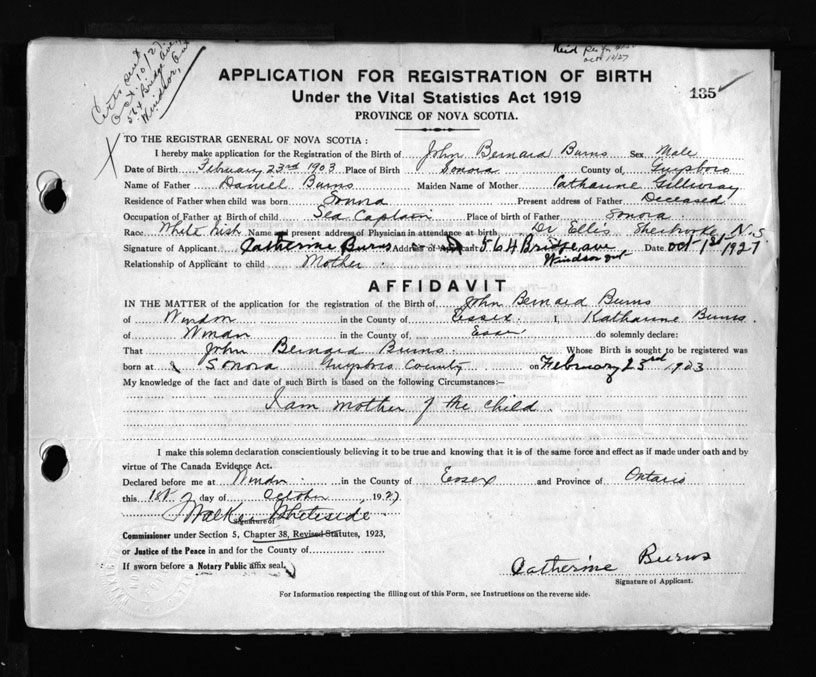 Certs sent
Oct. 10/27
564 Bridge Ave,
Windsor, Ont
APPLICATION FOR REGISTRATION OF BIRTH
135
Under the Vital Statistics Act 1919
PROVINCE OF NOVA SCOTIA.
TO THE REGISTRAR GENERAL OF NOVA SCOTIA:
I hereby make application for the Registration of the Birth of John Bernard Burns Sex Male
Date of Birth February 23rd 1903 Place of Birth Sonora County of Guysboro
Name of Father Daniel Burns Maiden Name of Mother Catharine Gillivray
Residence of Father when child was born Sonora Present address of Father Deceased
Occupation of Father at Birth of child Sea Captain Place of birth of Father Sonora
Race White Irish Name and present address of Physician in attendance at birth Dr Ellis Sherbrooke N.S
Signature of Applicant Catherine Burns Address of Applicant 564 Bridge ave Windsor ont Date Oct 1st 1927
Relationship of Applicant to child Mother
AFFIDAVIT
IN THE MATTER of the application for the registration of the Birth of John Bernard Burns
of Windsor in the County of Essex I, Katharine Burns
of Windsor in the County of, Essex do solemnly declare:
That John Bernard Burns Whose Birth is sought to be registered was
born at Sonora Guysboro County on February 23rd 1903
My knowledge of the fact and date of such Birth is based on the following Circumstances:—
I am mother of the child.
I make this solemn declaration conscientiously believing it to be true and knowing that it is of the same force and effect as if made under oath and by
virtue of The Canada Evidence Act.
Declared before me at Windsor in the County of Essex and Province of Ontario
this 1st day of October, 1927
Whiteside
Signature of
Commissioner under Section 5, Chapter 38, Revised Statutes, 1923,
or Justice of the Peace in and for the County of
If sworn before a Notary Public affix seal.
Catherine Burns
Signature of Applicant.
For Information respecting the filling out of this Form, see Instructions on the reverse side.